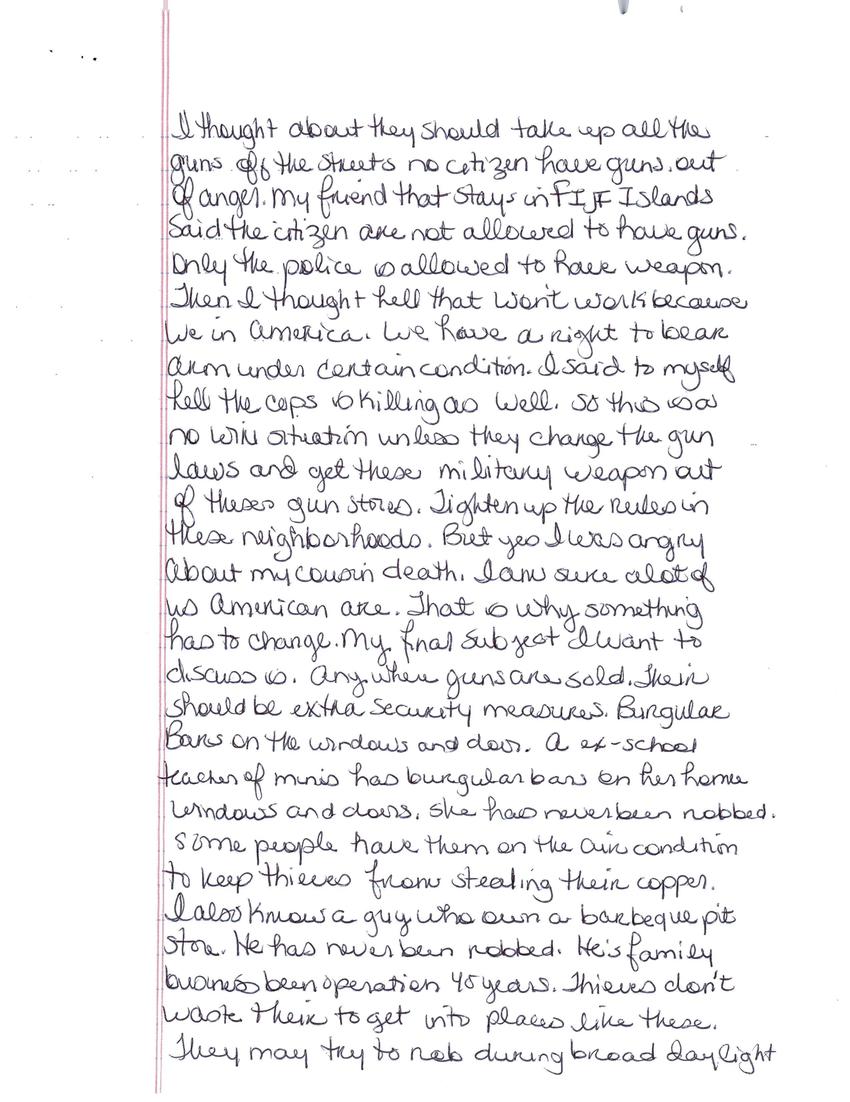 I thought about they should take up all the
guns off the streets no citizen have guns. out
of anger. My friend that stays in FIJI Islands
Said the citizen are not allowed to have guns.
Only the police is allowed to have weapon.
Then I thought hell that won't work because
we in America. We have a right to bear
arm under certain condition. I said to myself
hell the cops is killing as well. So this is a
no win situation unless they change the gun
laws and get these military weapon out
of these gun stores. Tighten up the rules in
these neighborhoods. But yes I was angry
about my cousin death. I am sure alot of
us American are. That is why something
has to change. My final subject I want to
discuss is. Any where guns are sold. Their
should be extra security measures. Burgular
Bars on the windows and door. A ex-school
teacher of mines has burgular bars on her home
windows and doors. She has never been robbed.
Some people have them on the air condition
to keep thieves from stealing their copper.
I also know a guy who own a barbeque pit
store. He has never been robbed. He's family
business been operation 45 years. Thieves don't
waste their to get into places like these.
They may try to rob during broad daylight